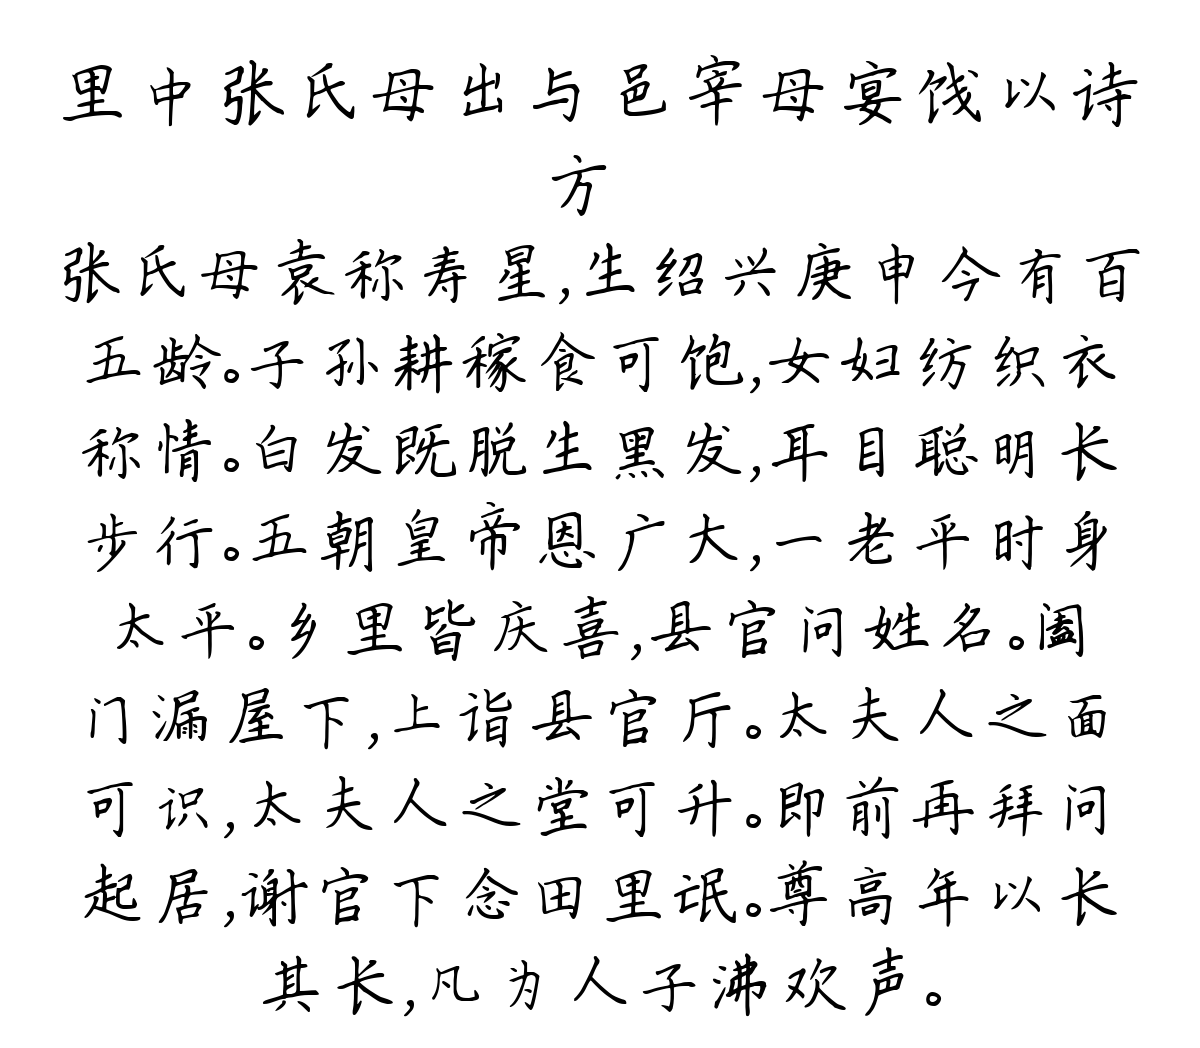 里中张氏母出与邑宰母宴饯以诗
方
张氏母袁称寿星,生绍兴庚申今有百
五龄。子孙耕稼食可饱,女妇纺织衣
称情。白发既脱生黑发,耳目聪明长
步行。五朝皇帝恩广大,一老平时身
太平。乡里皆庆喜,县官问姓名。阖
门漏屋下,上诣县官厅。太夫人之面
可识,太夫人之堂可升。即前再拜问
起居,谢官下念田里氓。尊高年以长
其长,凡为人子沸欢声。